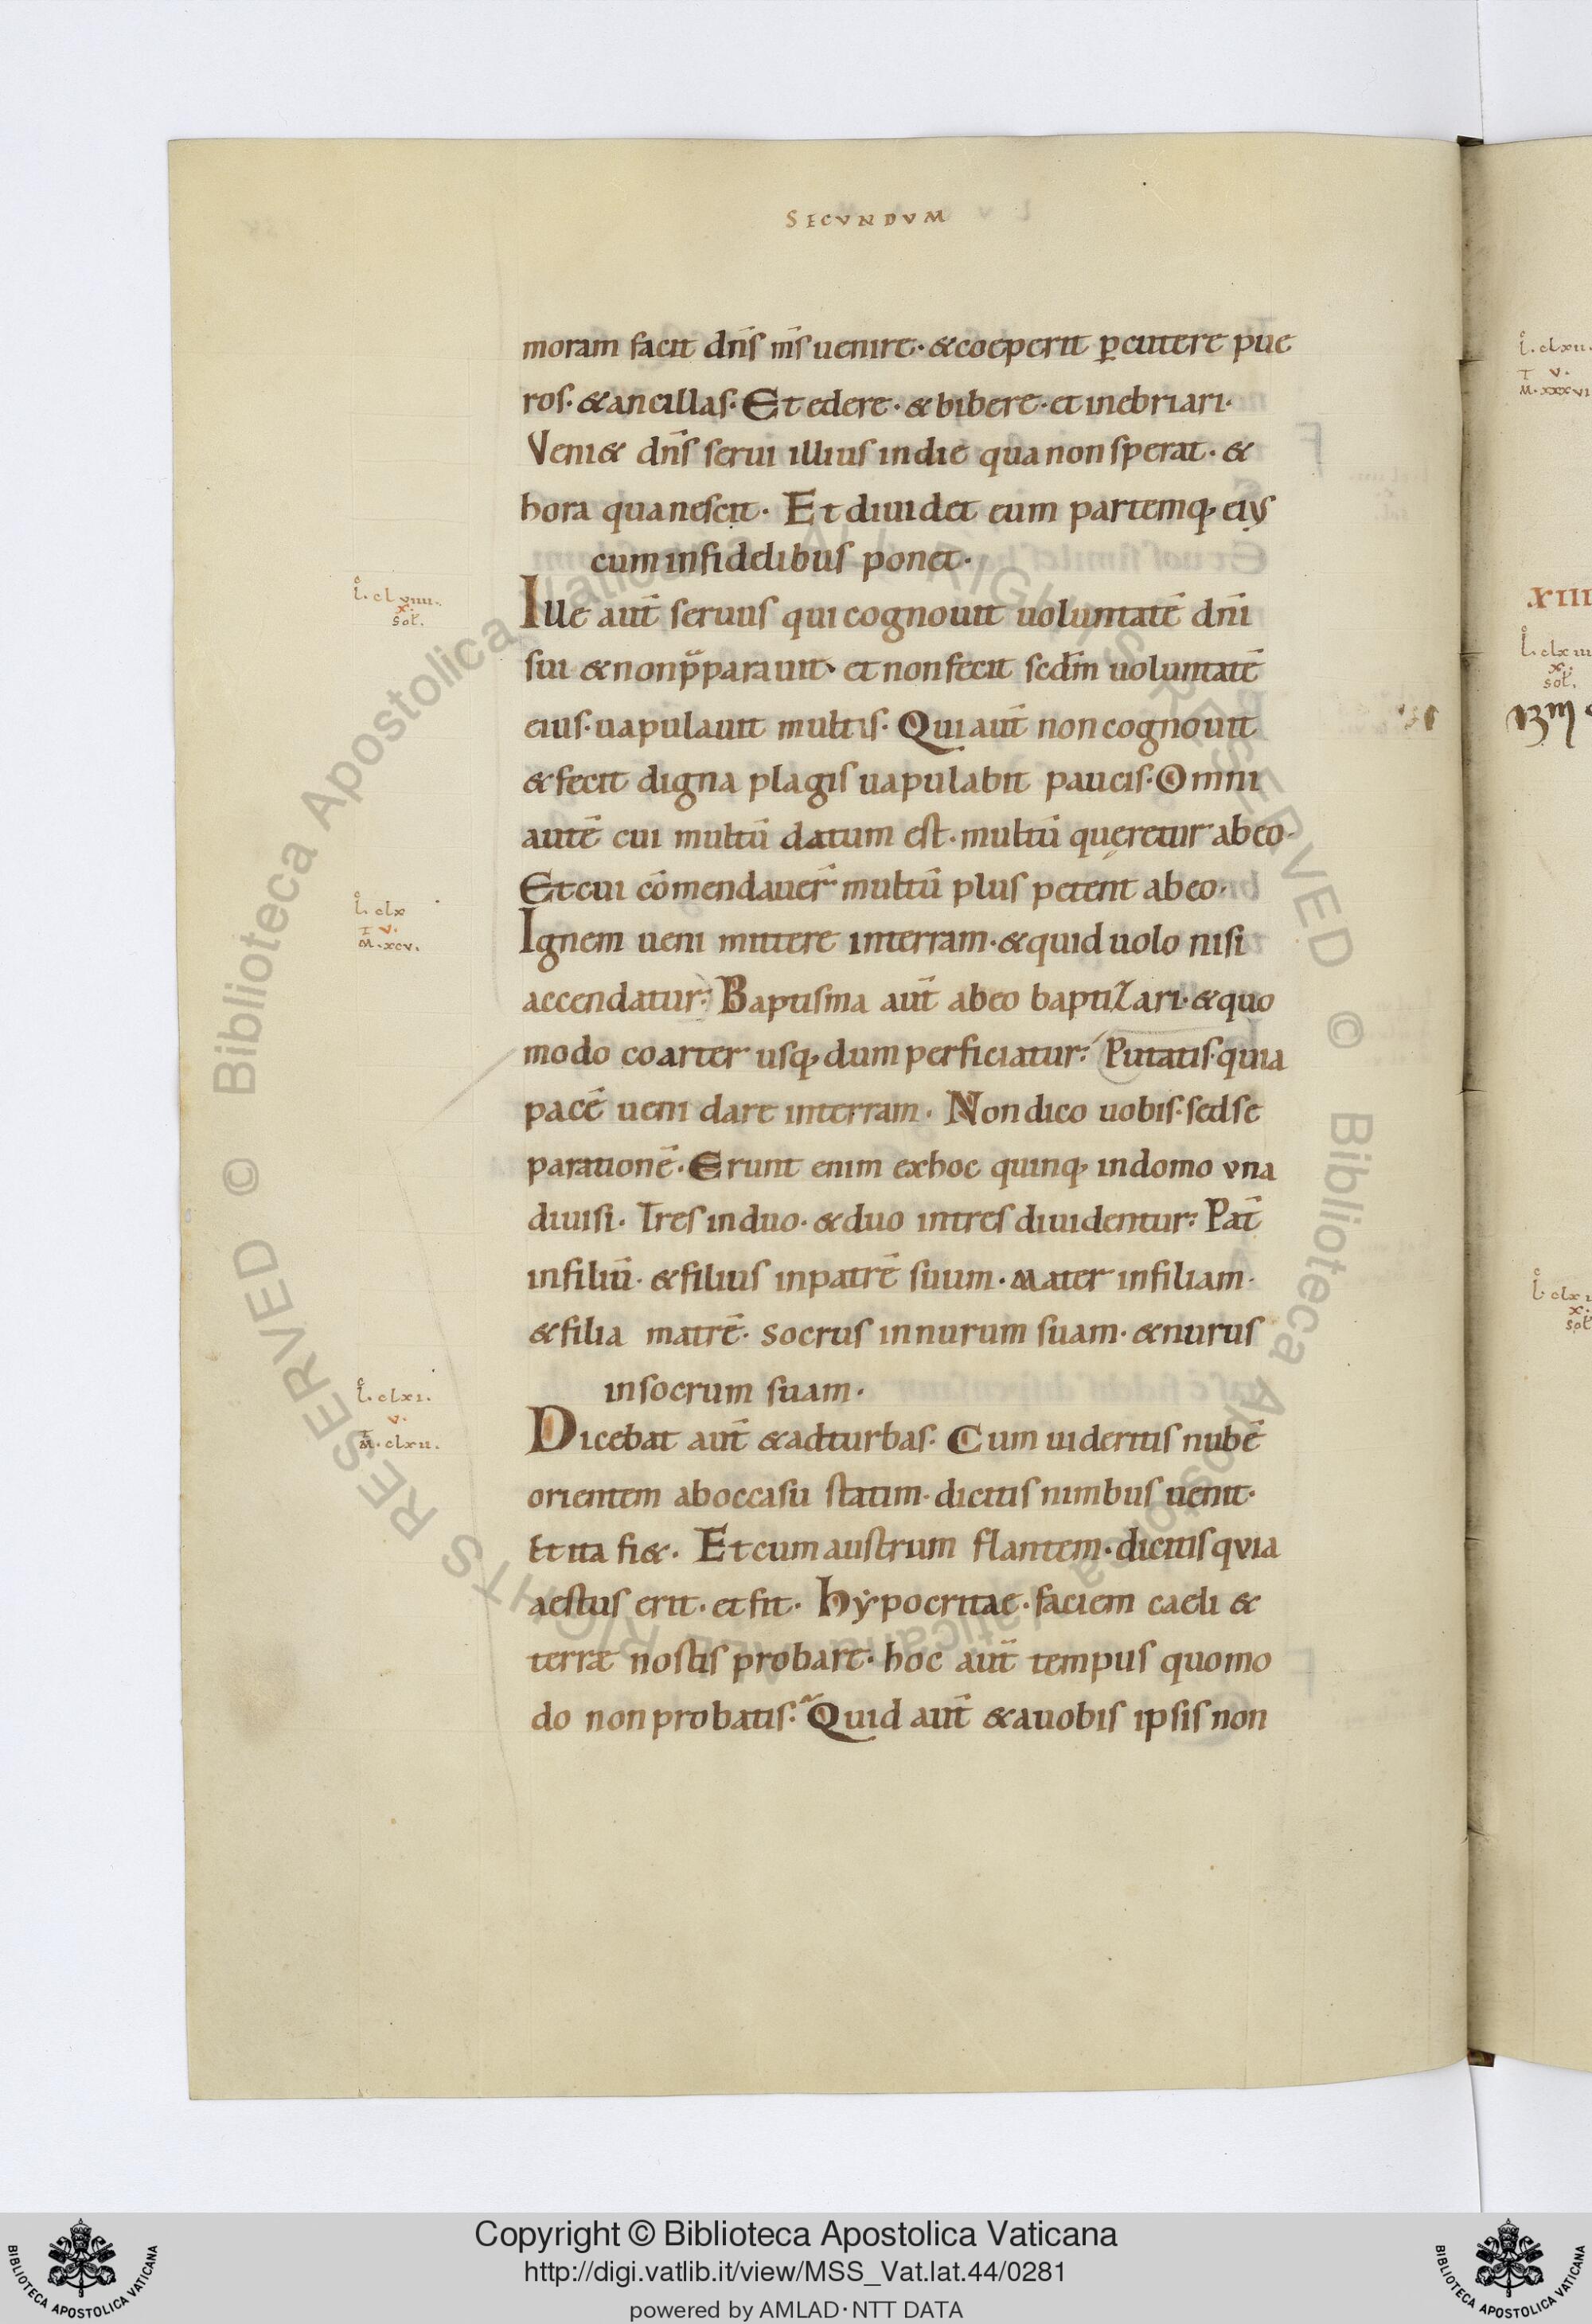 SECVNDVM
moram facit dn̄s m̄s uenire· &coeperit ꝑcutere pue
ros· &ancillas· Et edere· &bibere· et inebriari·
Veni& dn̄s serui illius indie qua non sperat· &
hora qua nescit· Et diuidet eum partemq; eiꝰ
cum infidelibus ponet·
Ille aut̄ seruus qui cognouit uoluntatē dn̄i
sui &nonp̄parauit· et nonfecit scdm̄ uoluntatē
eius· uapulauit multis· Qui aut̄ non cognouit
&fecit digna plagis uapulabit paucis· Omni
autē cui multū datum est· multū quęretur abeo·
Et cui cōmendauer̄ multū plus petent abeo·
Ignem ueni mittere interram· &quid uolo nisi
accendatur: Baptisma aut̄ abeo baptizari· &quo
modo coarter usq; dum perficiatur: Putatis· quia
pacē ueni dare interram· Non dico uobis· sedse
parationē· Erunt enim exhoc quinq; indomo vna
diuisi· Tres induo· &duo intres diuidentur: Pat̄
infiliū· &filius inpatrē suum· Mater infiliam·
&filia matrē· Socrus innurum suam· &nurus
insocrum suam·
Dicebat aut̄ &adturbas· Cum uideritis nubē
orientem aboccasu statim· dicitis nimbus uenit·
Et ita fi&· Et cum austrum flantem· dicitis qvia
aestus erit· et fit· hẏpocritae· faciem caeli &
terræ nostis probare· hoc aut̄ tempus quomo
do non probatis: Quid aut̄ &auobis ipsis non
L. clviiii.
x.
sol.
L. clx
v.
M. xcv.
L. clxi.
v.
M. clxii.
L. clxii.
v.
M. xxxvi
XIII
x.
sol.
Copyright © Biblioteca Apostolica Vaticana
http://digi.vatlib.it/view/MSS_Vat.lat.44/0281
powered by AMLAD·NTT DATA
BIBLIOTECA APOSTOLICA VATICANA
BIBLIOTECA APOSTOLICA VATICANA
© Biblioteca Apostolica Vaticana ALL RIGHTS RESERVED © Biblioteca Apostolica Vaticana ALL RIGHTS RESERVED